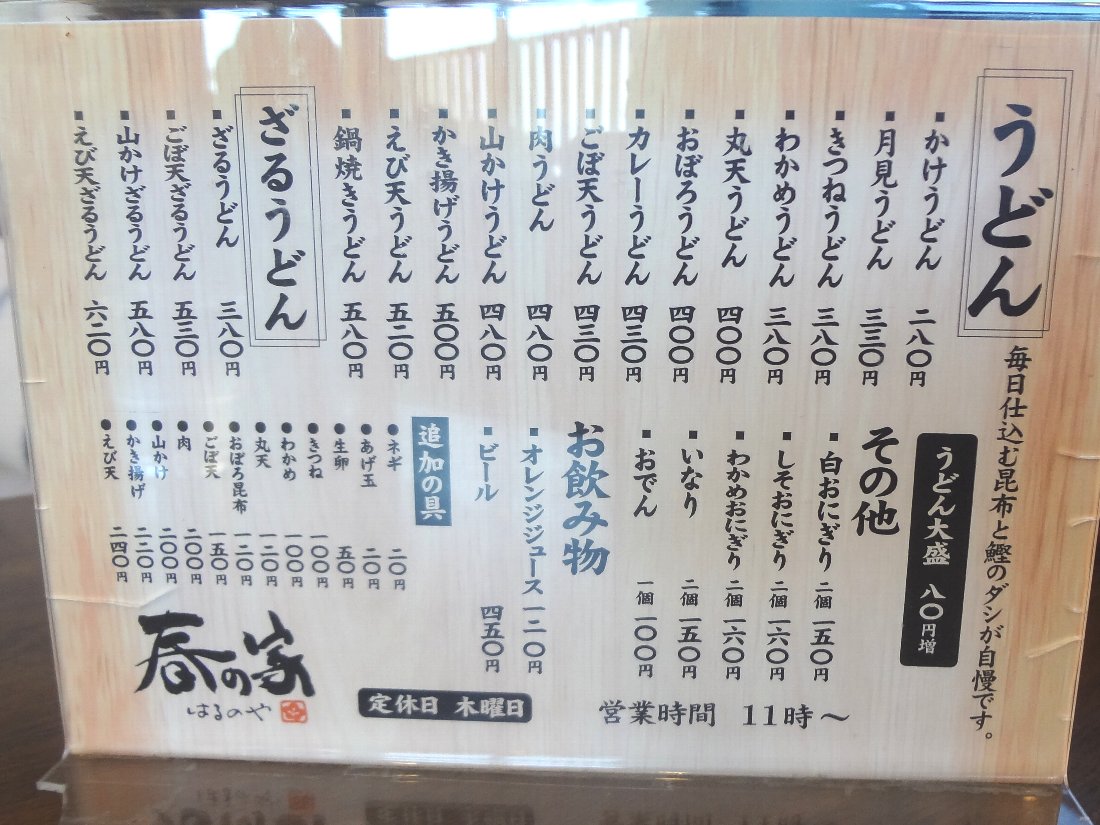 うどん
毎日仕込む昆布と鰹のダシが自慢です。
■かけうどん 二八〇円
■月見うどん 三三〇円
■きつねうどん 三八〇円
■わかめうどん 三八〇円
■丸天うどん 四〇〇円
■おぼろうどん 四〇〇円
■カレーうどん 四三〇円
■ごぼ天うどん 四三〇円
■肉うどん 四八〇円
■山かけうどん 四八〇円
■かき揚げうどん 五〇〇円
■えび天うどん 五二〇円
■鍋焼きうどん 五八〇円
ざるうどん
■ざるうどん 三八〇円
■ごぼ天ざるうどん 五三〇円
■山かけざるうどん 五八〇円
■えび天ざるうどん 六二〇円
うどん大盛 八〇円増
その他
■白おにぎり 二個 一五〇円
■しそおにぎり 二個 一六〇円
■わかめおにぎり 二個 一六〇円
■いなり 二個 一五〇円
■おでん 一個 一〇〇円
お飲み物
■オレンジジュース 一二〇円
■ビール 四五〇円
追加の具
●ネギ 二〇円
●あげ玉 二〇円
●生卵 五〇円
●きつね 一〇〇円
●わかめ 一〇〇円
●丸天 一二〇円
●おぼろ昆布 一二〇円
●ごぼ天 一五〇円
●肉 二〇〇円
●山かけ 二〇〇円
●かき揚げ 二二〇円
●えび天 二四〇円
営業時間 11時～
定休日 木曜日
春の家
はるのや